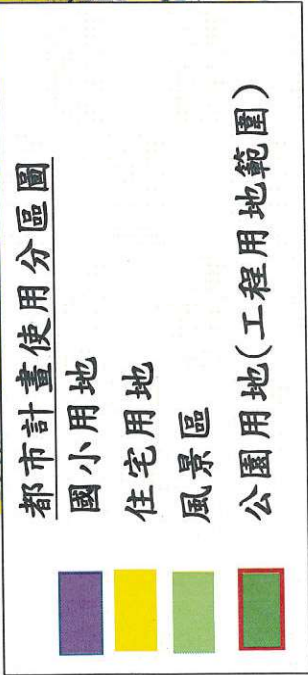 都市計畫使用分區圖
國小用地
住宅用地
風景區
公園用地(工程用地範圍)